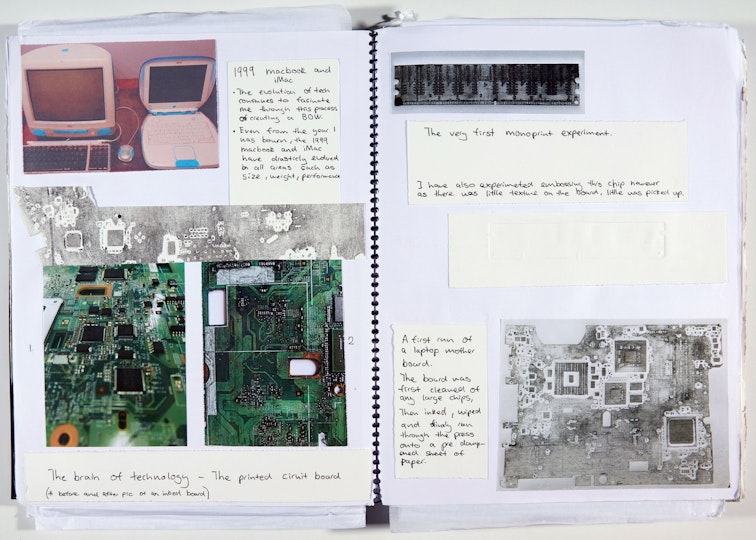 1999 macbook and
iMac
• The evolution of tech
continues to facinate
me through this process
of creating a BOW.
• Even from the year I
was bourn, the 1999
macbook and iMac
have drasticly evolved
in all areas such as
size, weight, performance
1.
2
The brain of technology – The printed ciruit board
(A before and after pic of an inked board)
The very first monoprint experiment.
I have also experimented embossing this chip however
as there was little texture on the board, little was picked up.
A first run of
a laptop mother
board.
The board was
first cleaned of
any large chips,
Then inked, wiped
and finaly ran
through the press
onto a pre damp-
med sheet of
paper.